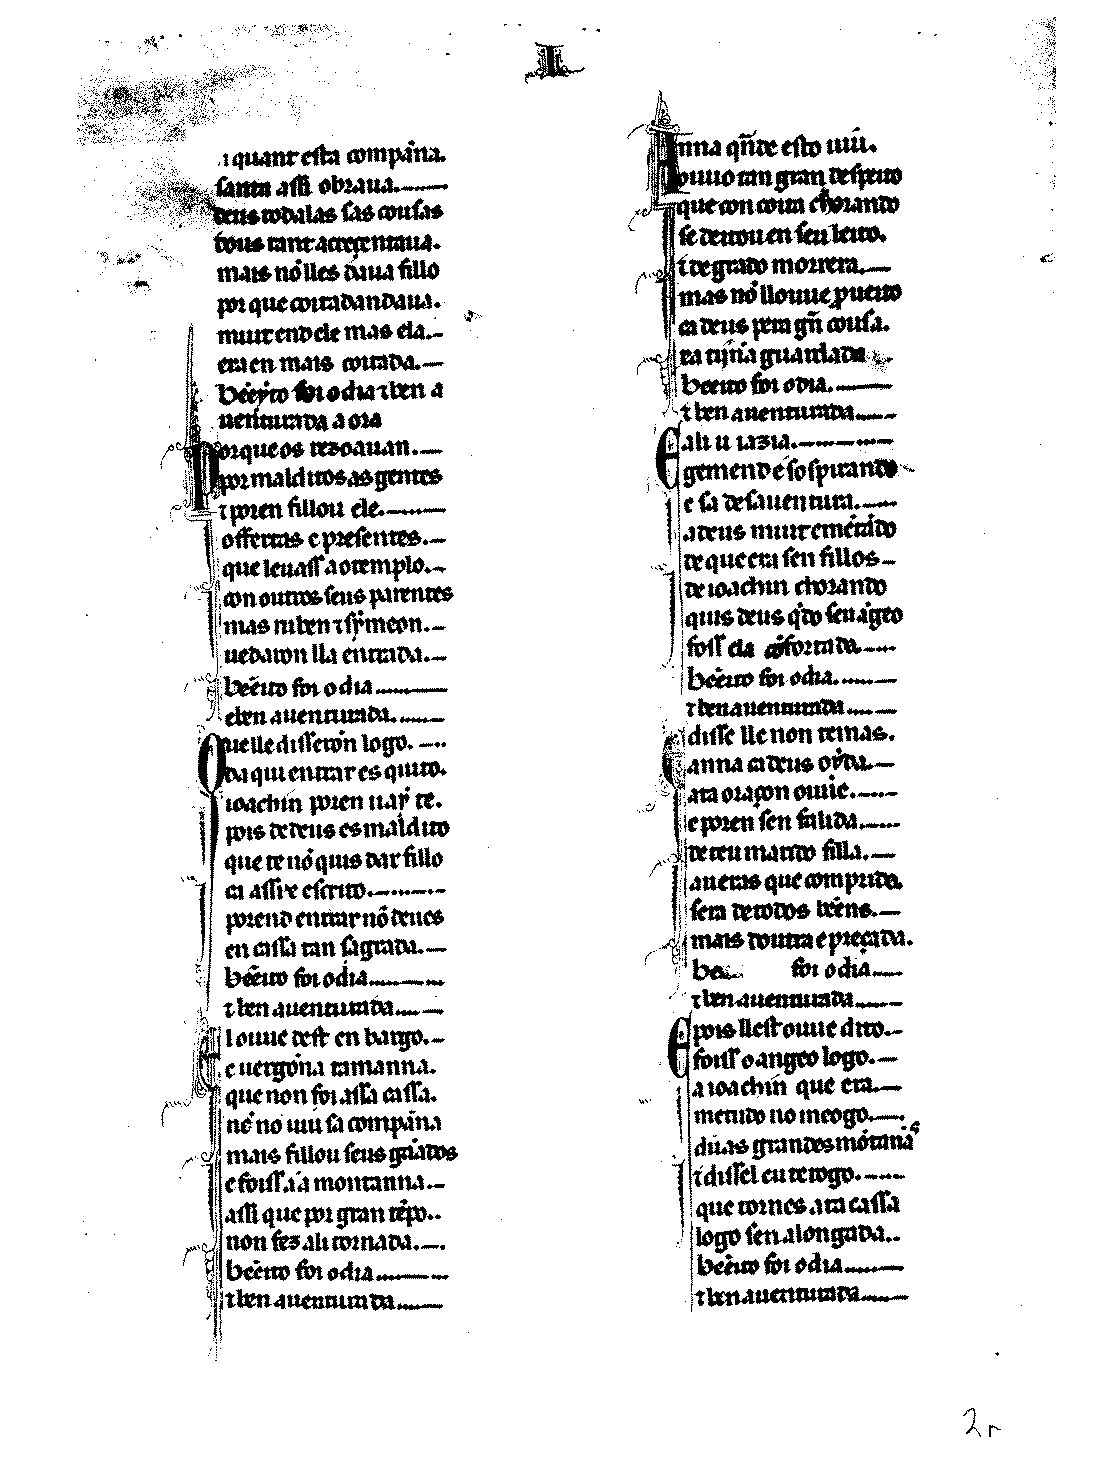 I
quant esta compan̄a.
santa assi obraua.
deus todalas sas cousas
tous tant acreçentaua.
mais nō lles daua fillo
por que coitad andaua.
muit end ele mas ela.
era en mais coitada.
bēeyto foi o dia ⁊ ben a
uenturada a ora
Porque os rezoauan.
por malditos as gentes
⁊ poren fillou ele.
offertas e presentes.
que leuass ao templo.
con outros seus parentes
mas ruben ⁊ symeon.
uedaron lla entrada.
bēeito foi o dia
e ben auenturada.
Quelle disseron logo.
da qui entrar es quito.
ioachin poren uay te.
pois de deus es maldito
que te nō quis dar fillo
ca assi x̓ escrito.
porend entrar nō deues
en cassa tan sagrada.
bēeito foi o dia
⁊ ben auenturada
El ouue dest en bargo.
e uergon̄a tamanna.
que non foi assa cassa.
nē no uiu sa compan̄a
mais fillou seus gãados
e foiss a a montanna.
assi que por gran tēpo.
non fez ali tornada.
bēeito foi o dia
⁊ ben auenturada
Anna qñde esto uiu.
ouuo tan gran despeito
que con coita chorando
se deitou en seu leito.
⁊ de grado morrera.
mas nō llouue ꝓueito
ca deus pera gñ cousa.
a tijn̄a guardada
bēeito foi o dia.
⁊ ben auenturada
E ali u iazia.
gemend e sospirando
e sa desauentura.
a deus muit emētādo
de que era sen fillos
de ioachin chorando
quis deus q̇do seu āgeo
foss ela cōfortada.
bēeito foi o dia.
⁊ ben auenturada
E disse lle non temas.
anna ca deus oyda.
a ta oraçon ouue.
e poren sen falida.
de teu marido filla.
aueras que comprida.
sera de todos bēens.
mais doutra e preçada.
be foi o dia
⁊ ben auenturada
E pois llest ouue dito.
foiss o angeo logo.
a ioachin que era.
metudo no meogo.
duas grandes mōtanas
⁊ dissel eu te rogo.
que tornes ata cassa
logo sen alongada.
bēeito foi o dia
⁊ ben auenturada
2r